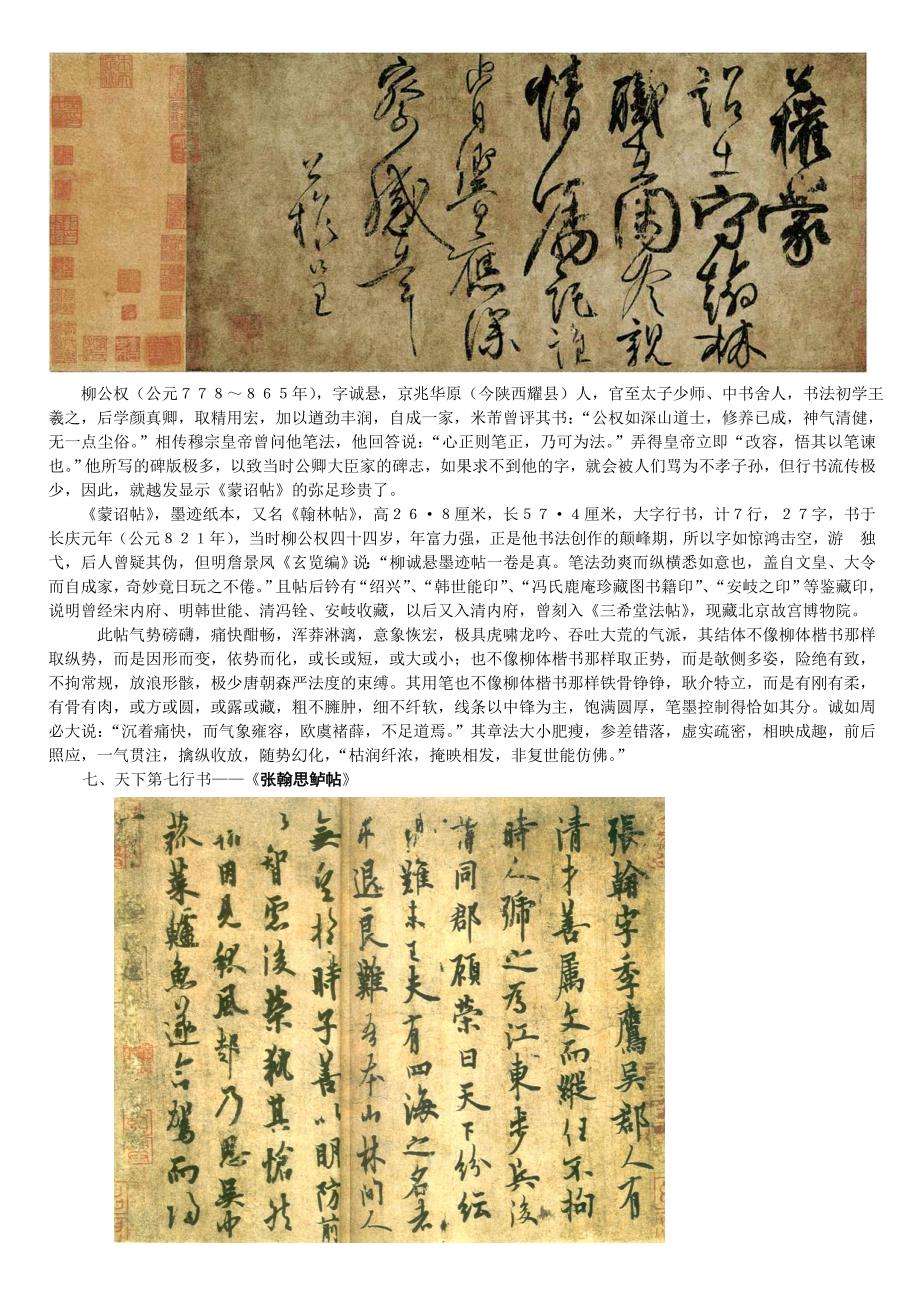 公權蒙
詔出守翰林
職在閑冷親
情囑託誰
肯響應深
察感幸
公權呈
柳公权（公元７７８～８６５年），字诚悬，京兆华原（今陕西耀县）人，官至太子少师、中书舍人，书法初学王
羲之，后学颜真卿，取精用宏，加以遒劲丰润，自成一家，米芾曾评其书：“公权如深山道士，修养已成，神气清健，
无一点尘俗。”相传穆宗皇帝曾问他笔法，他回答说：“心正则笔正，乃可为法。”弄得皇帝立即“改容，悟其以笔谏
也。”他所写的碑版极多，以致当时公卿大臣家的碑志，如果求不到他的字，就会被人们骂为不孝子孙，但行书流传极
少，因此，就越发显示《蒙诏帖》的弥足珍贵了。
《蒙诏帖》，墨迹纸本，又名《翰林帖》，高２６·８厘米，长５７·４厘米，大字行书，计７行，２７字，书于
长庆元年（公元８２１年），当时柳公权四十四岁，年富力强，正是他书法创作的颠峰期，所以字如惊鸿击空，游　独
弋，后人曾疑其伪，但明詹景凤《玄览编》说：“柳诚悬墨迹帖一卷是真。笔法劲爽而纵横悉如意也，盖自文皇、大令
而自成家，奇妙竟日玩之不倦。”且帖后钤有“绍兴”、“韩世能印”、“冯氏鹿庵珍藏图书籍印”、“安岐之印”等鉴藏印，
说明曾经宋内府、明韩世能、清冯铨、安岐收藏，以后又入清内府，曾刻入《三希堂法帖》，现藏北京故宫博物院。
此帖气势磅礴，痛快酣畅，浑莽淋漓，意象恢宏，极具虎啸龙吟、吞吐大荒的气派，其结体不像柳体楷书那样
取纵势，而是因形而变，依势而化，或长或短，或大或小；也不像柳体楷书那样取正势，而是欹侧多姿，险绝有致，
不拘常规，放浪形骸，极少唐朝森严法度的束缚。其用笔也不像柳体楷书那样铁骨铮铮，耿介特立，而是有刚有柔，
有骨有肉，或方或圆，或露或藏，粗不臃肿，细不纤软，线条以中锋为主，饱满圆厚，笔墨控制得恰如其分。诚如周
必大说：“沉着痛快，而气象雍容，欧虞褚薛，不足道焉。”其章法大小肥瘦，参差错落，虚实疏密，相映成趣，前后
照应，一气贯注，擒纵收放，随势幻化，“枯润纤浓，掩映相发，非复世能仿佛。”
七、天下第七行书——《张翰思鲈帖》
張翰字季鷹吳郡人有
清才善屬文而縱任不拘
時人號之為江東步兵後
謂同郡顧榮曰天下紛紜
禍難未已夫有四海之名者
求退良難吾本山林間人
無望於時子善以明防前
以智慮後榮執其愴然
翰因見秋風起乃思吳中
菰菜鱸魚遂命駕而歸